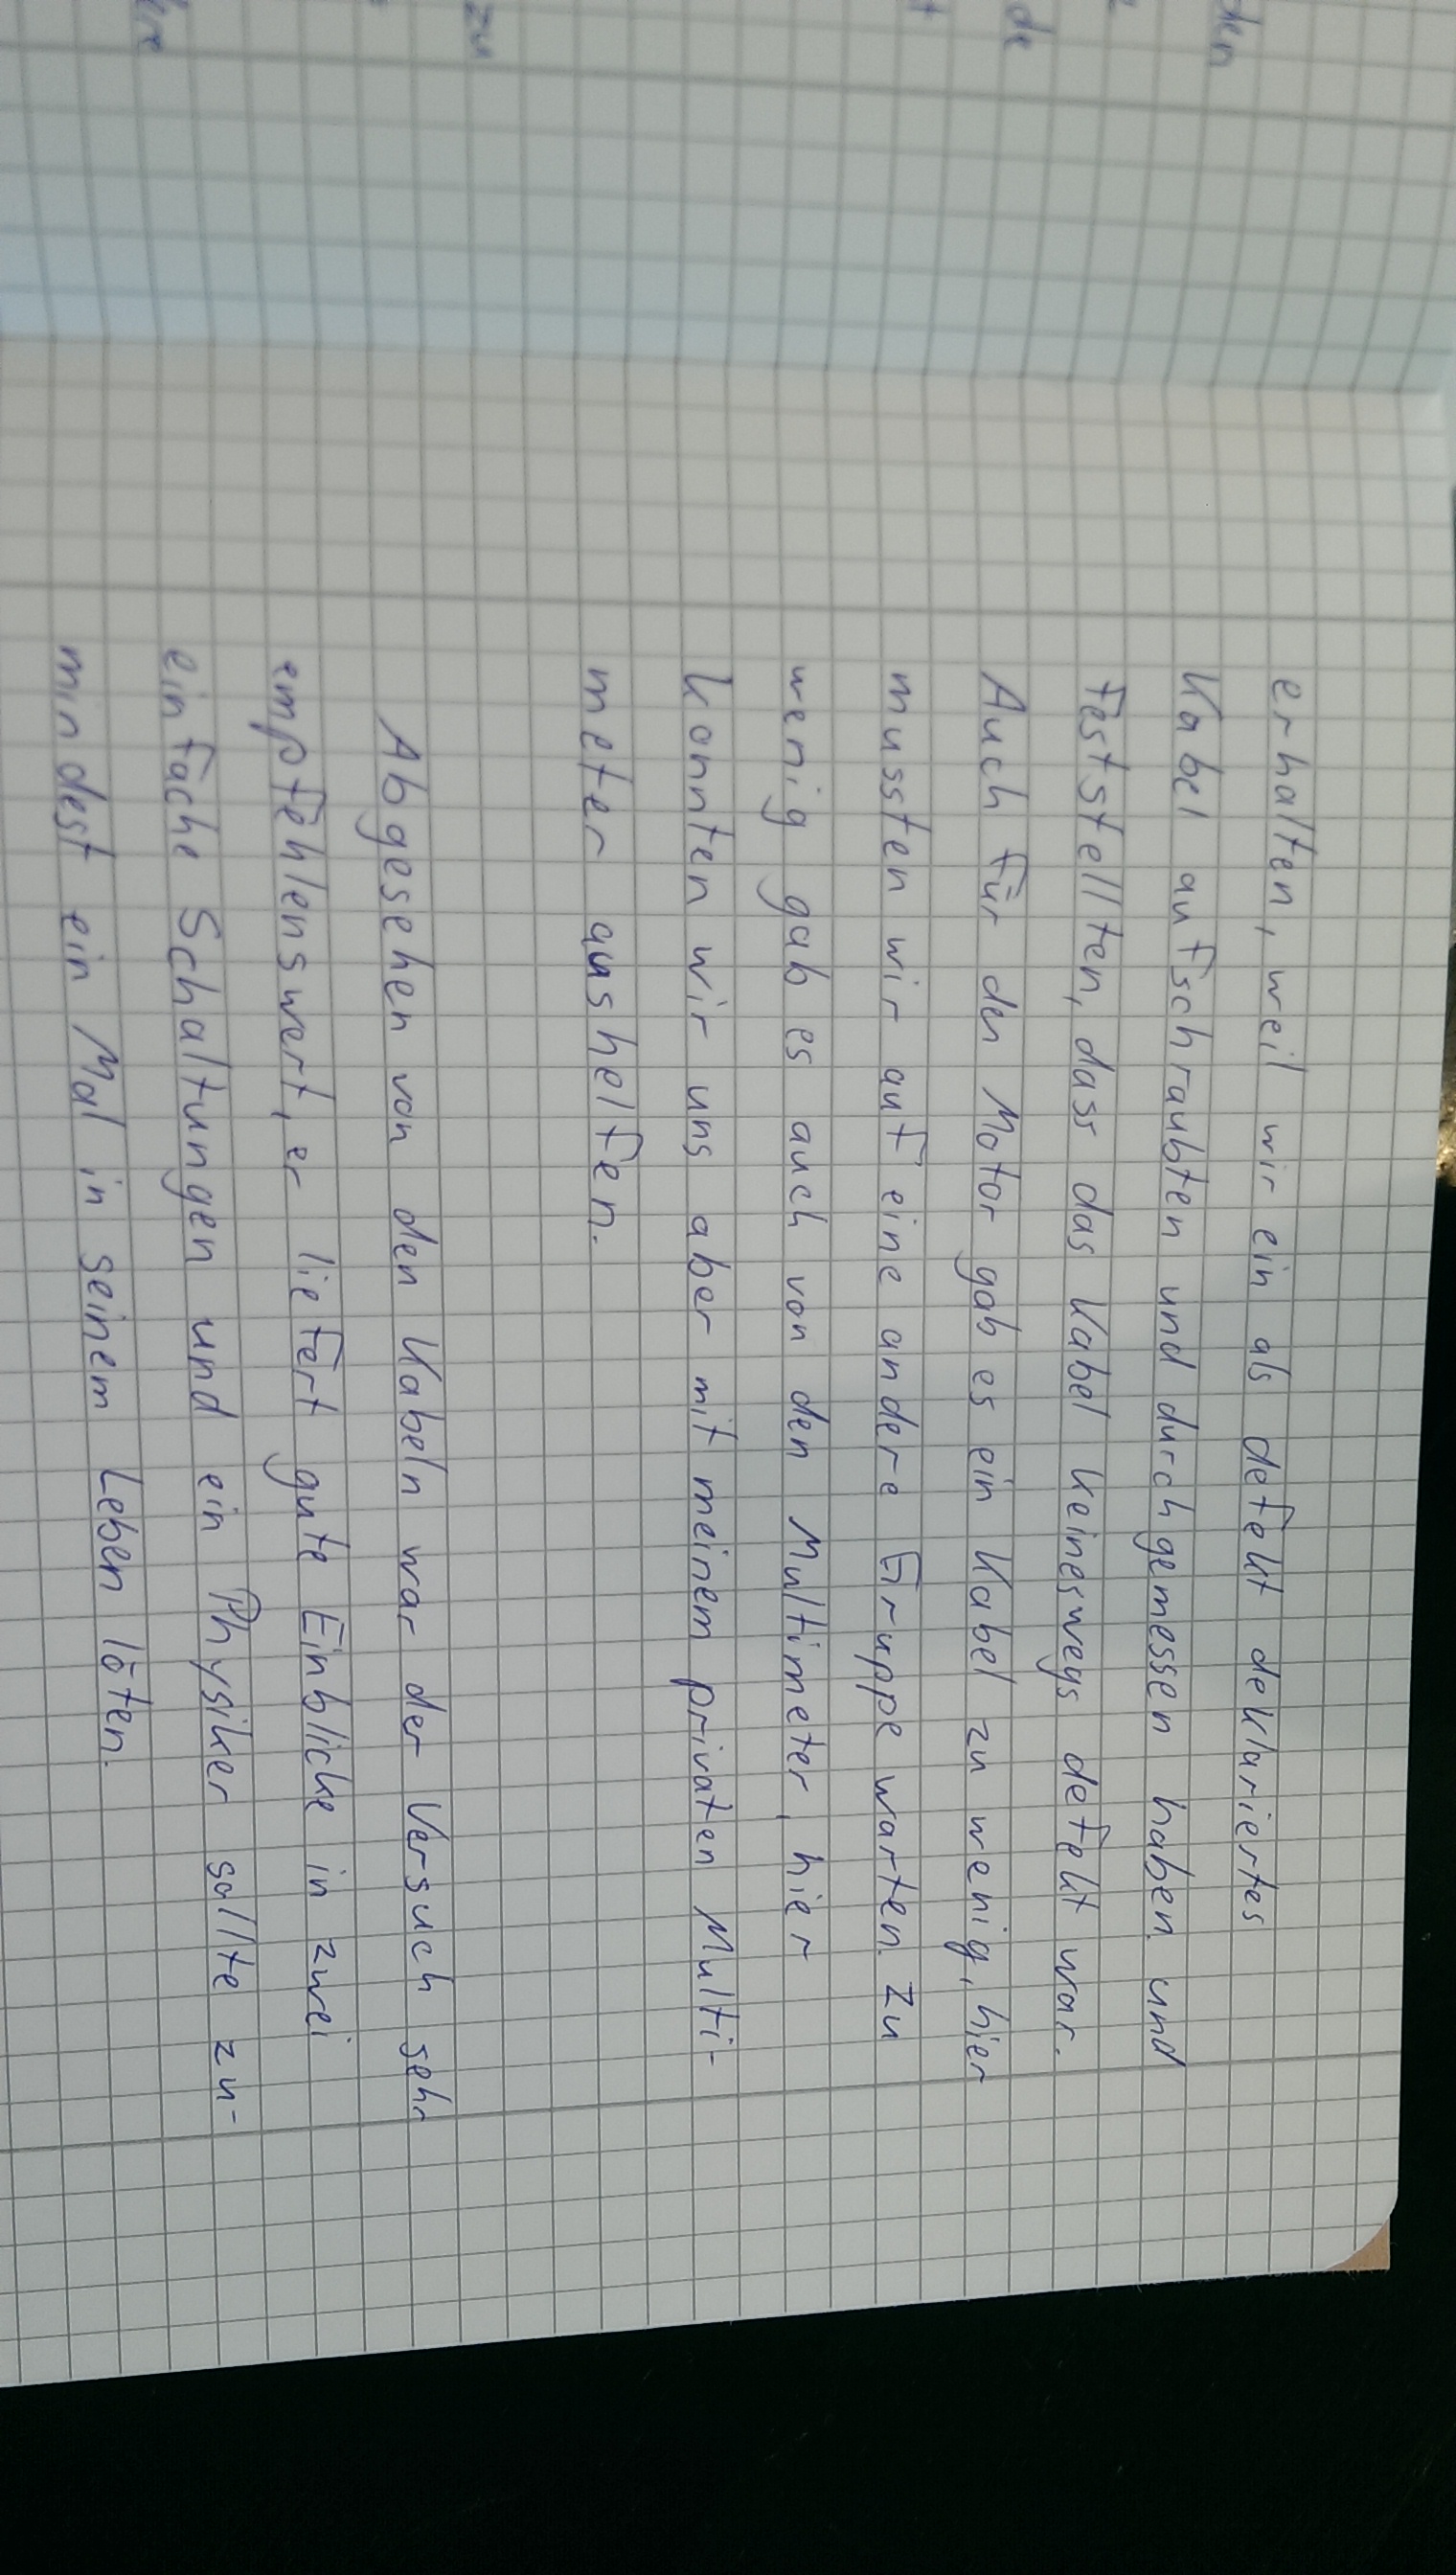 erhalten, weil wir ein als defekt deklariertes
Kabel aufschraubten und durchgemessen haben und
feststellten, dass das Kabel keineswegs defekt war.
Auch für den Motor gab es ein Kabel zu wenig, hier
mussten wir auf eine andere Gruppe warten. Zu
wenig gab es auch von den Multimeter, hier
konnten wir uns aber mit meinem privaten Multi-
meter aushelfen.
Abgesehen von den Kabeln war der Versuch sehr
empfehlenswert, er liefert gute Einblicke in zwei
einfache Schaltungen und ein Physiker sollte zu-
mindest ein Mal in seinem Leben löten.
den
de
t
zu